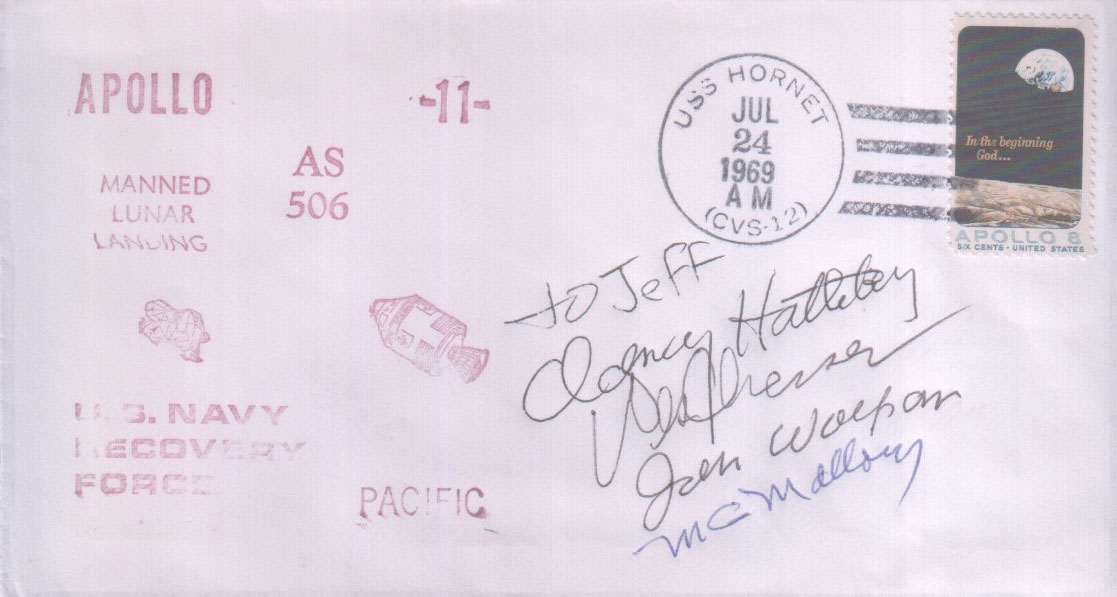 APOLLO -11-
AS
506
MANNED
LUNAR
LANDING
U.S. NAVY
RECOVERY
FORCE
PACIFIC
USS HORNET
JUL
24
1969
AM
(CVS-12)
In the beginning
God...
APOLLO 8
SIX CENTS · UNITED STATES
to Jeff
Clancy Hatleberg
Wes Chesser
John Wolfram
Mallory